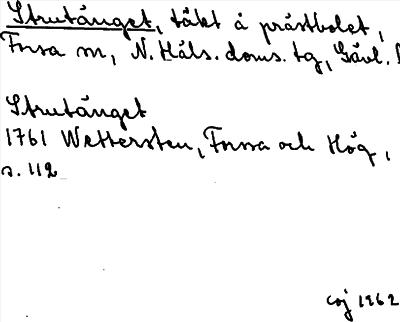 Strutänget, täkt å prästbolet,
Forsa sn, N. Häls. doms. tg, Gävl. l
Strutänget
1761 Wettersten, Forsa och Hög,
s. 112
1962